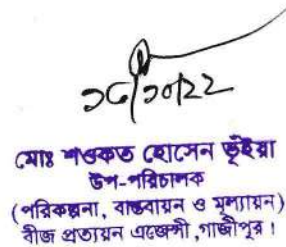 ১৫/১০/২২
মোঃ শওকত হোসেন ভূইয়া
উপ-পরিচালক
(পরিকল্পনা, বাস্তবায়ন ও মূল্যায়ন)
বীজ প্রত্যয়ন এজেন্সী, গাজীপুর।